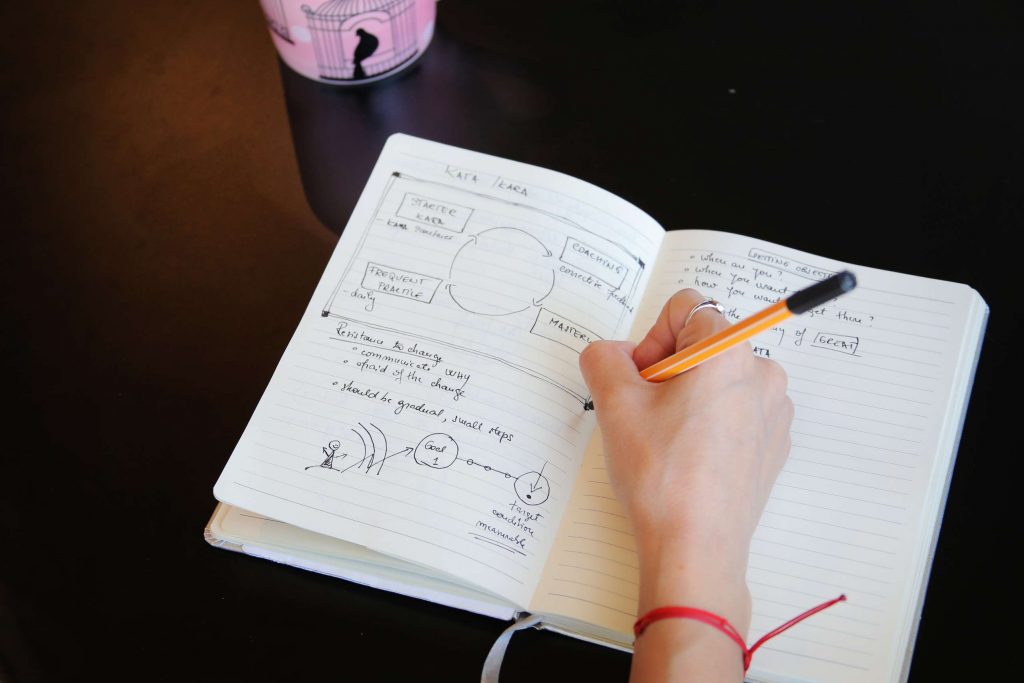 KATA / KARA
STARTER
KARA
- KAMA
COACHING
corrective
FREQUENT
PRACTICE
- daily
MASTER
Resistance to change
• communicate WHY
• afraid of the change
• should be gradual, small steps
Goal
1
target
condition
measurable
SETTING OBJECT
• when are you?
• where you want
• how you want get there?
the of GREAT
ATA